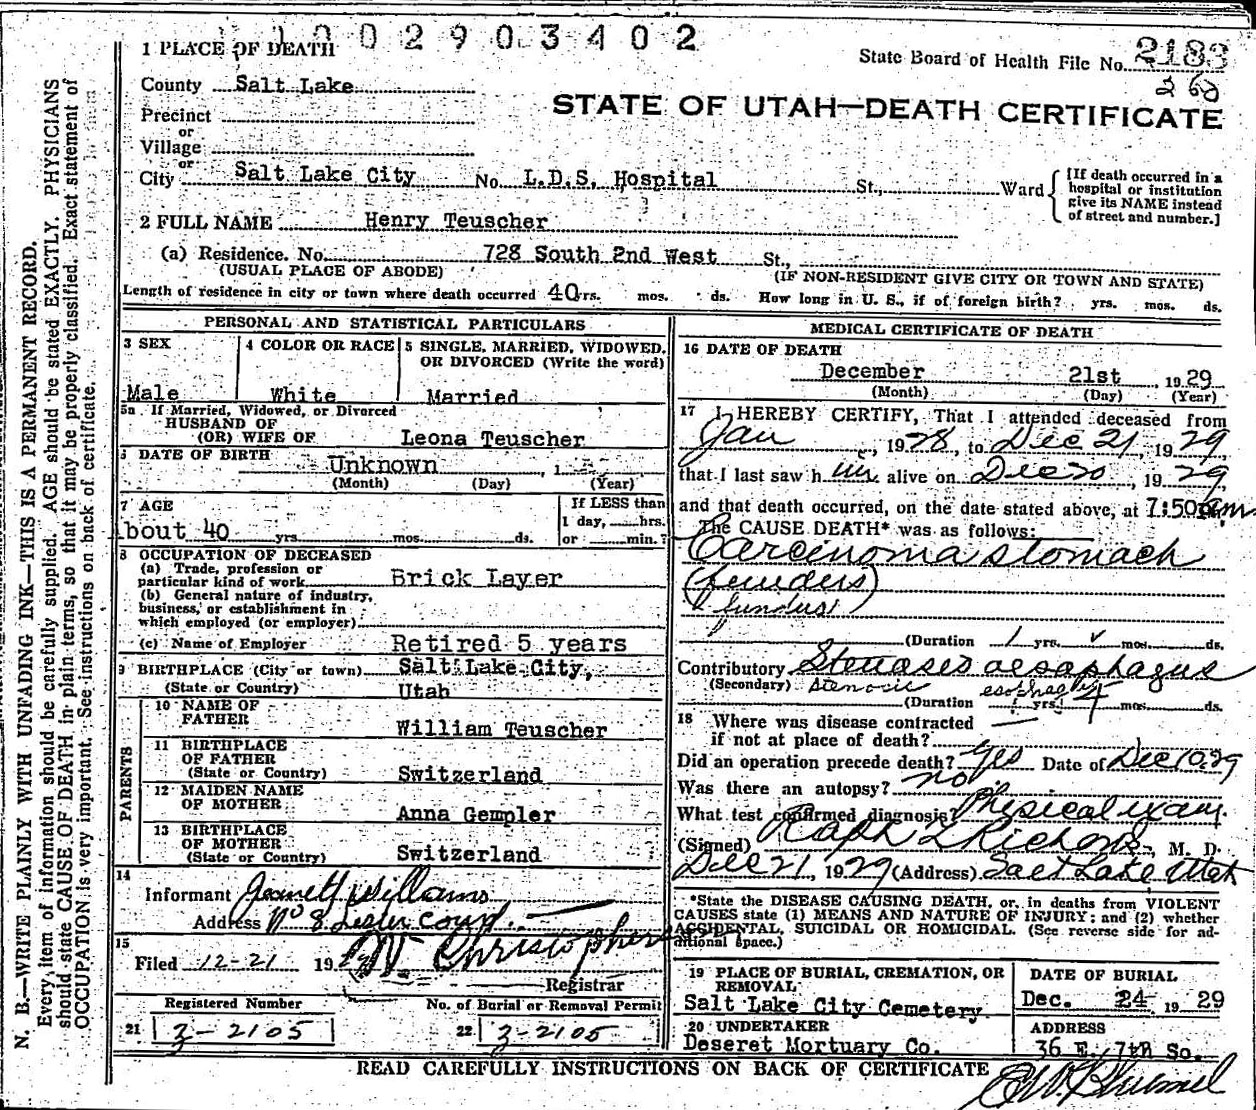 1002903402
1 PLACE OF DEATH
State Board of Health File No. 2183
268
County Salt Lake
STATE OF UTAH—DEATH CERTIFICATE
Precinct
or
Village
or
City Salt Lake City No. L.D.S. Hospital St., Ward
[If death occurred in a
hospital or institution
give its NAME instead
of street and number.]
2 FULL NAME Henry Teuscher
(a) Residence. No. 728 South 2nd West St.,
(USUAL PLACE OF ABODE) (IF NON-RESIDENT GIVE CITY OR TOWN AND STATE)
Length of residence in city or town where death occurred 40 yrs. mos. ds. How long in U. S., if of foreign birth? yrs. mos. ds.
PERSONAL AND STATISTICAL PARTICULARS
3 SEX
Male
4 COLOR OR RACE
White
5 SINGLE, MARRIED, WIDOWED,
OR DIVORCED (Write the word)
Married
5a If Married, Widowed, or Divorced
HUSBAND OF
(OR) WIFE OF Leona Teuscher
6 DATE OF BIRTH Unknown , 1
(Month) (Day) (Year)
7 AGE
bout 40 yrs. mos. ds.
If LESS than
1 day, hrs.
or min.?
8 OCCUPATION OF DECEASED
(a) Trade, profession or
particular kind of work Brick Layer
(b) General nature of industry,
business, or establishment in
which employed (or employer)
(c) Name of Employer Retired 5 years
9 BIRTHPLACE (City or town) Salt Lake City,
(State or Country) Utah
PARENTS
10 NAME OF
FATHER William Teuscher
11 BIRTHPLACE
OF FATHER
(State or Country) Switzerland
12 MAIDEN NAME
OF MOTHER Anna Gempler
13 BIRTHPLACE
OF MOTHER
(State or Country) Switzerland
14
Informant Williams
Address No 8 Lester Court
15
Filed 12-21 192 W Christopherson
Registrar
Registered Number No. of Burial or Removal Permit
21 3-2105 22 3-2105
MEDICAL CERTIFICATE OF DEATH
16 DATE OF DEATH
December 21st , 1929
(Month) (Day) (Year)
17 I HEREBY CERTIFY, That I attended deceased from
Jan , 1928, to Dec 21, 1929
that I last saw him alive on Dec 20 , 1929,
and that death occurred, on the date stated above, at 7:50 am
The CAUSE DEATH* was as follows:
Carcinoma stomach
(funders)
fundus
(Duration 1 yrs. mos. ds.
Contributory Stenases oesaphagus
(Secondary) stenosis esophagus
(Duration yrs. 4 mos. ds.
18 Where was disease contracted
if not at place of death?
Did an operation precede death? Yes Date of Dec 10.29
Was there an autopsy? no
What test confirmed diagnosis? Physical exam.
(Signed) Ralph Richards, M. D.
Dec 21, 1929 (Address) Salt Lake Utah
*State the DISEASE CAUSING DEATH, or, in deaths from VIOLENT
CAUSES state (1) MEANS AND NATURE OF INJURY; and (2) whether
ACCIDENTAL, SUICIDAL OR HOMICIDAL. (See reverse side for ad-
ditional space.)
19 PLACE OF BURIAL, CREMATION, OR
REMOVAL
Salt Lake City Cemetery.
DATE OF BURIAL
Dec. 24 1929
20 UNDERTAKER
Deseret Mortuary Co.
ADDRESS
36 E. 7th So.
READ CAREFULLY INSTRUCTIONS ON BACK OF CERTIFICATE
N. B.—WRITE PLAINLY WITH UNFADING INK—THIS IS A PERMANENT RECORD.
Every item of information should be carefully supplied. AGE should be stated EXACTLY. PHYSICIANS
should state CAUSE OF DEATH in plain terms, so that it may be properly classified. Exact statement of
OCCUPATION is very important. See instructions on back of certificate.